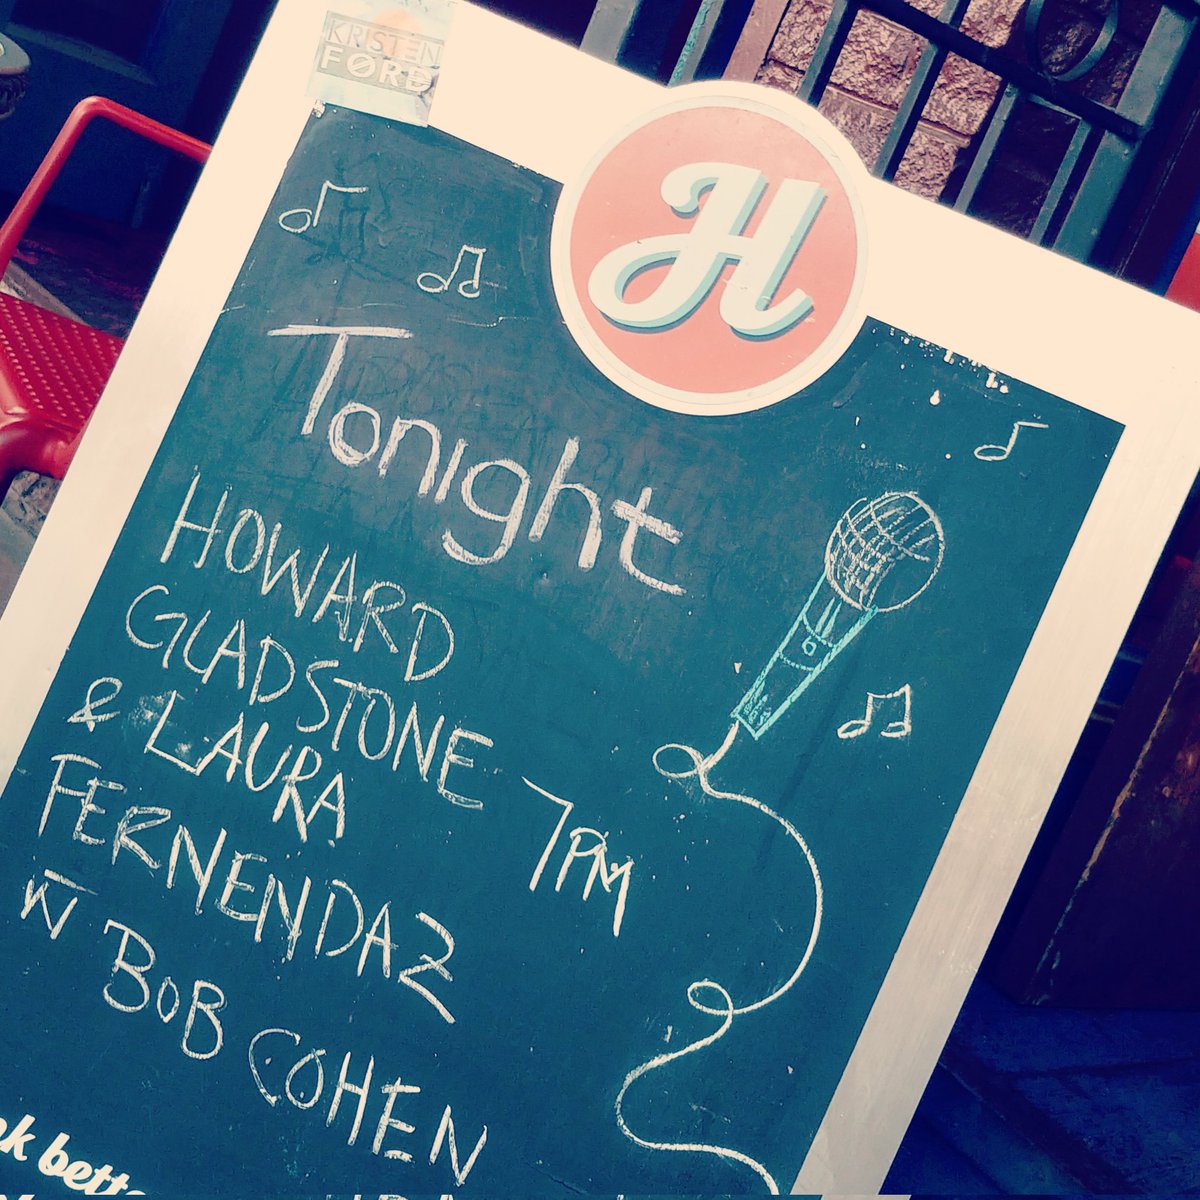 KRISTEN
FØRD
H
Tonight
HOWARD
GLADSTONE
& LAURA
FERNENDAZ
7PM
W̄ BOB COHEN